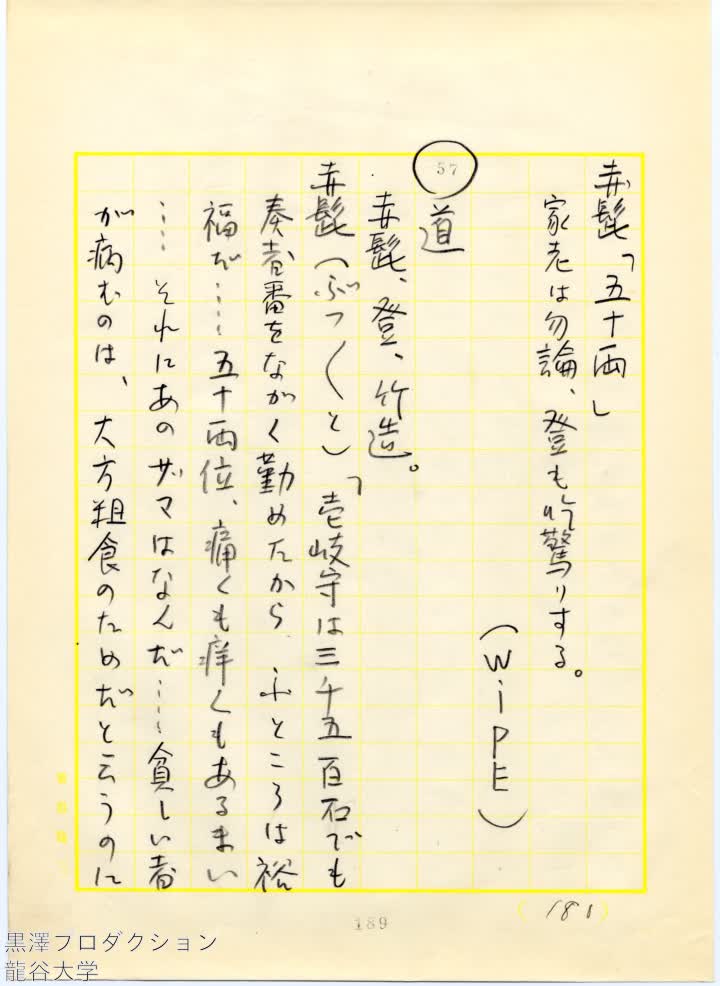 赤髭「五十両」
家老は勿論、登も吃驚りする。
(WiPE)
57
道
赤髭、登、竹造。
赤髭(ぶつくと)「壱岐守は三千五百石でも
奏者番をながく勤めたから ふところは裕
福だ……五十両位、痛くも痒くもあるまい
…… それにあのザマはなんだ……貧しい者
が病むのは、大方粗食のためだと云うのに
(181)
189
黒澤プロダクション
龍谷大学